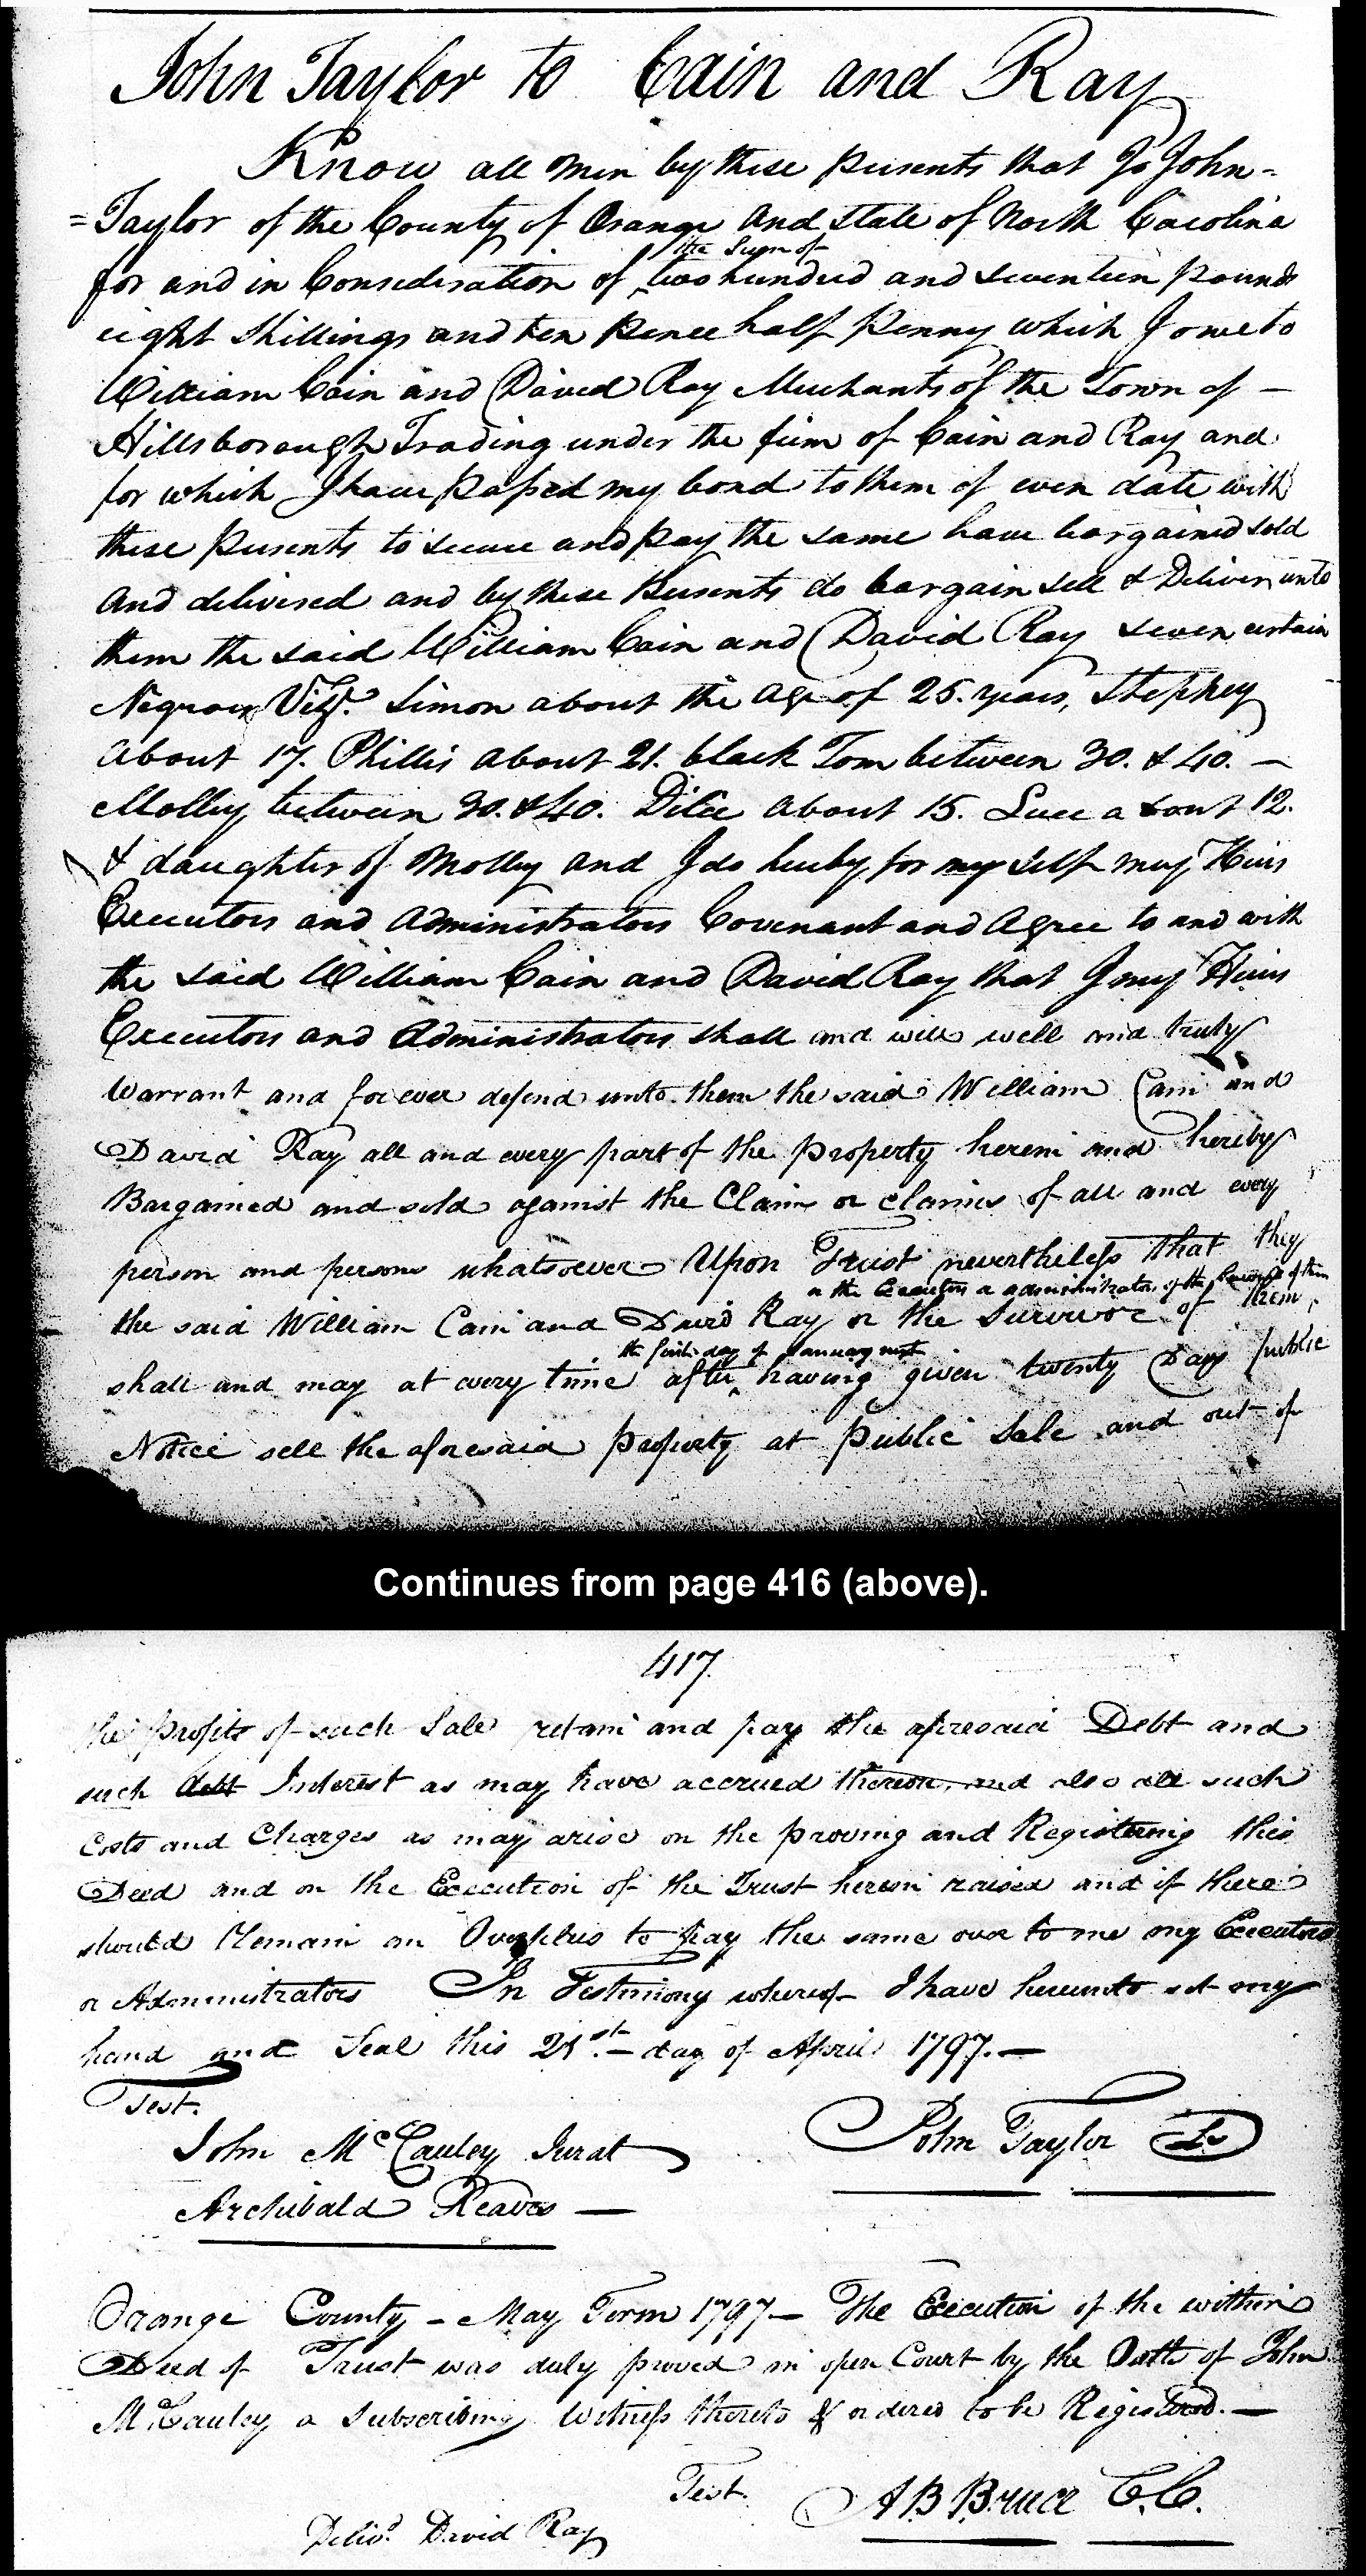 John Taylor to Cain and Ray
Know all men by these presents that I John =
= Taylor of the County of Orange and State of North Carolina
the Sum of
for and in Consideration of ^ two hundred and seventeen pounds
eight shillings and ten pence half penny which I owe to
William Cain and David Ray Merchants of the Town of –
Hillsborough Trading under the firm of Cain and Ray and
for which I have passed my bond to them of even date with
these presents to secure and pay the same have bargained sold
and delivered and by these presents do bargain sell & Deliver unto
them the said William Cain and David Ray seven certain
Negroes Vizt. Simon about the age of 25. years, Stephey
about 17. Phillis about 21. black Tom between 30. & 40. –
Molley between 30. & 40. Dilce about 15. Luce about 12.
& daughter of Molley and I do hereby for my self my Heirs
Executors and Administrators Covenant and Agree to and with
the said William Cain and David Ray that I my Heirs
Executors and Administrators shall and will well and truly
Warrant and forever defend unto them the said William Cain and
David Ray all and every part of the property herein and hereby
Bargained and sold against the Claim or claims of all and every
person and persons whatsoever Upon Trust nevertheless that they
or the Executors or administrators of the Survivor of them
the said William Cain and David Ray or the Survivor of them,
the first day of January next
shall and may at every time after ^ having given twenty Days public
Notice sell the aforesaid property at public Sale and out of
Continues from page 416 (above).
417
the profits of such Sale retain and pay the aforesaid Debt and
such debt Interest as may have accrued thereon, and also all such
Costs and Charges as may arise on the proving and Registering this
Deed and on the Execution of the Trust herein raised and if there
should Remain an Overplus to pay the same over to me my Executors
or Administrators In Testimony whereof I have hereunto set my
hand and Seal this 21st. – day of April 1797. –
Test.
John McCauley Jurat
John Taylor Ls
Archibald Reaves –
Orange County – May Term 1797 – The Execution of the within
Deed of Trust was duly proved in open Court by the Oath of John
McCauley a Subscribing Witness thereto & ordered to be Registered. –
Test. A B Bruce C.C.
Delivd. David Ray